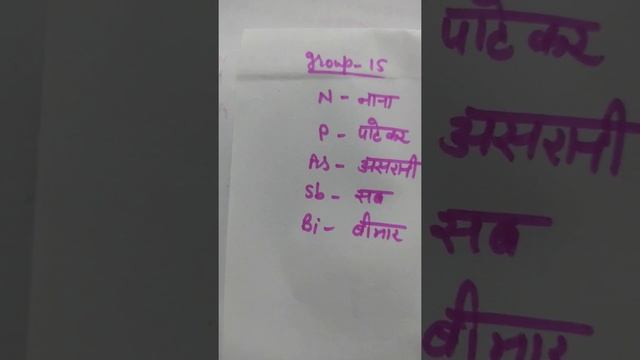 group-15
N - नाना
P - पाटेकर
As - असरानी
Sb - सब
Bi - बीमार
पाटेकर
असरानी
सब
बीमार